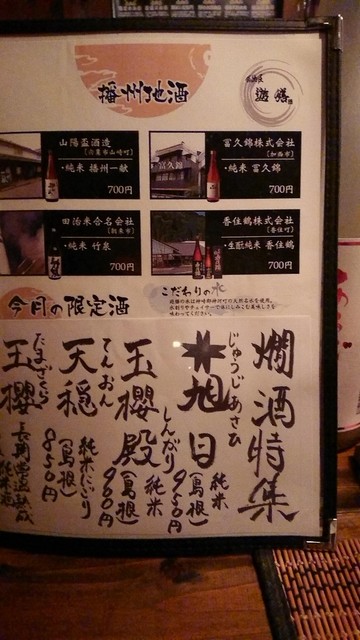 播州地酒
遊膳
山陽盃酒造
[宍粟市山崎町]
・純米 播州一献
700円
富久錦株式会社
[加西市]
・純米 富久錦
700円
田治米合名会社
[朝来市]
・純米 竹泉
700円
香住鶴株式会社
[香住町]
・生酛純米 香住鶴
700円
今月の限定酒
こだわりの水
燗酒特集
じゅうじあさひ
旭日
純米
(島根)
950円
しんだり
玉櫻殿
純米
(島根)
900円
てんおん
天穏
純米にごり
(島根)
850円
たまざくら
玉櫻